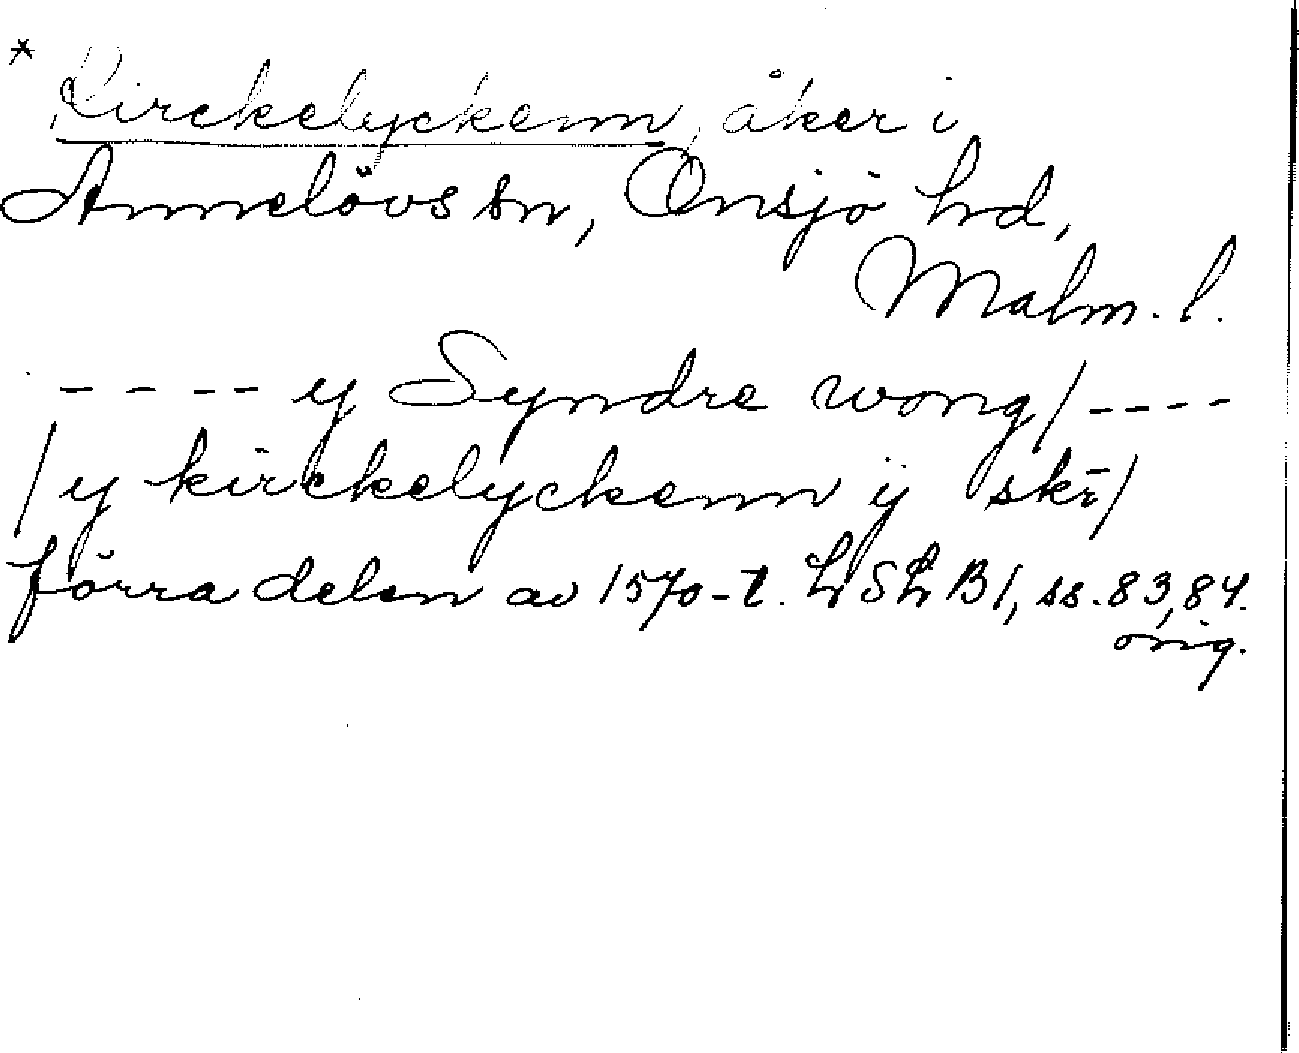 * Kirckelyckenn, åker i
Annelövs sn, Onsjö hd,
Malm. l.
---- y Syndre wong/----
/y kirckelyckenn ij skr̄/
förra delen av 1570-t. LSLB1, ss. 83,84.
orig.